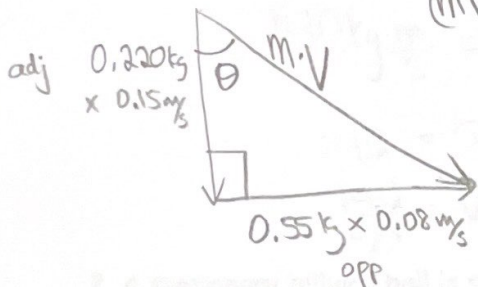 (m
adj 0.220kg
× 0.15m/s
θ
m·V
0.55kg × 0.08m/s
opp